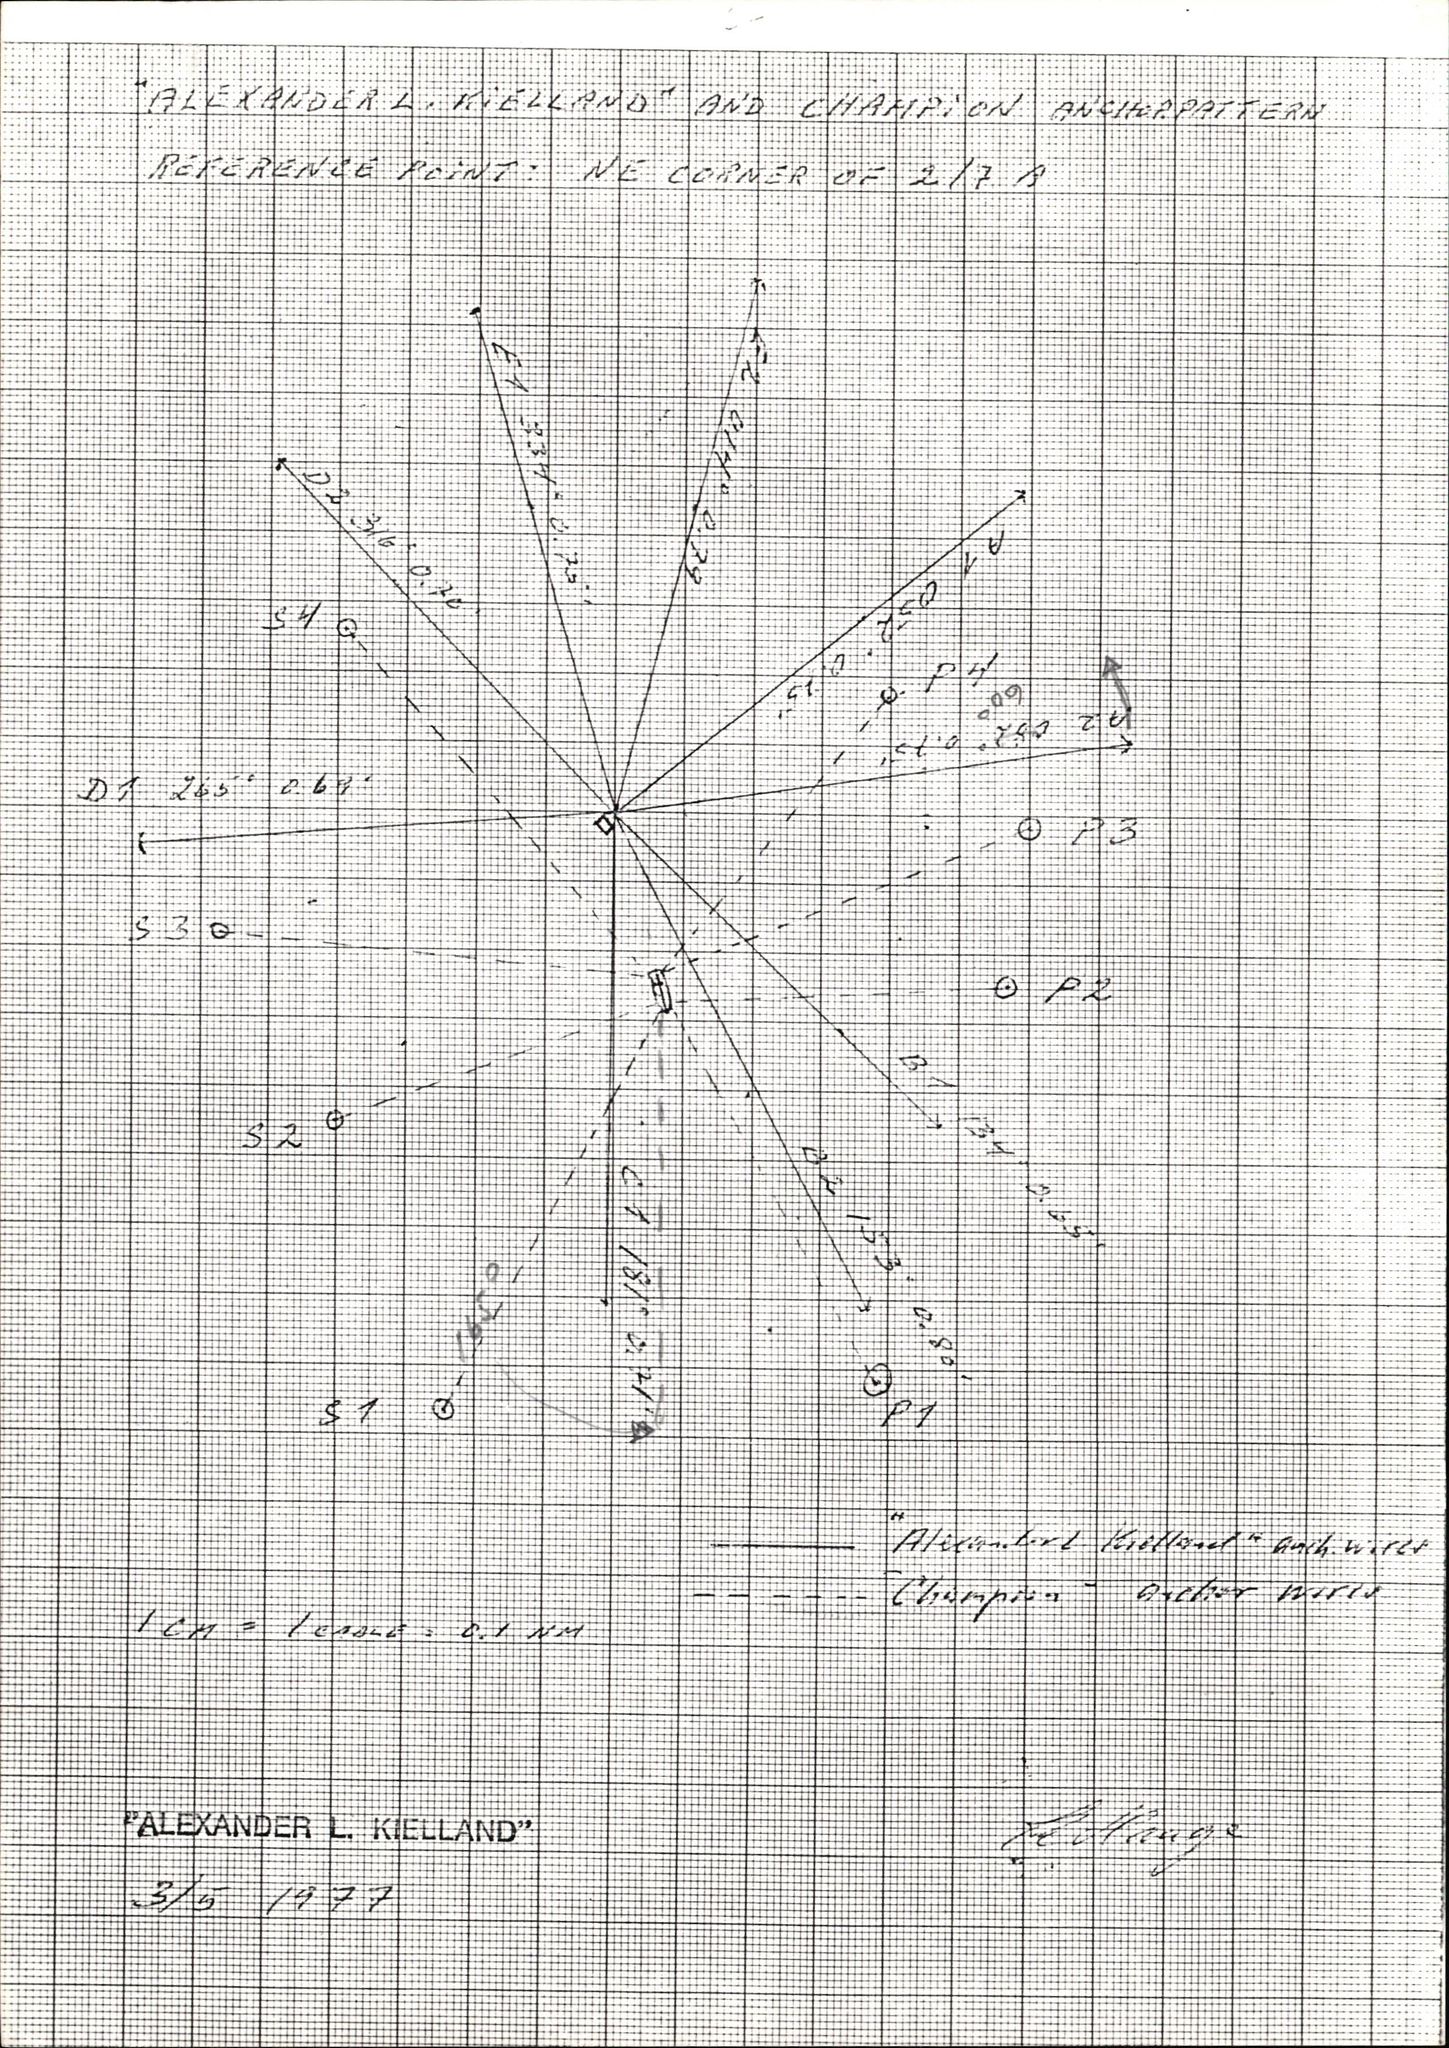 "ALEXANDER L. KIELLAND" AND CHAMPION ANCHORPATTERN
REFERENCE POINT: NE CORNER OF 2/7 A
E1 334° 0.75'
E2 014° 0.79
D2 316° 0.70'
A1 052° 0.75'
S4
P4
60°
A2 0.75'
D1 265° 0.69'
P3
S3
P2
B1 0.65'
S2
B2 153° 0.80'
C1 181° 0.71'
165°
S1
P1
"Alexander L Kielland" anch. wires
"Champion" anchor wires
1 CM = 1 CABLE = 0.1 NM
"ALEXANDER L. KIELLAND"
3/5 1977